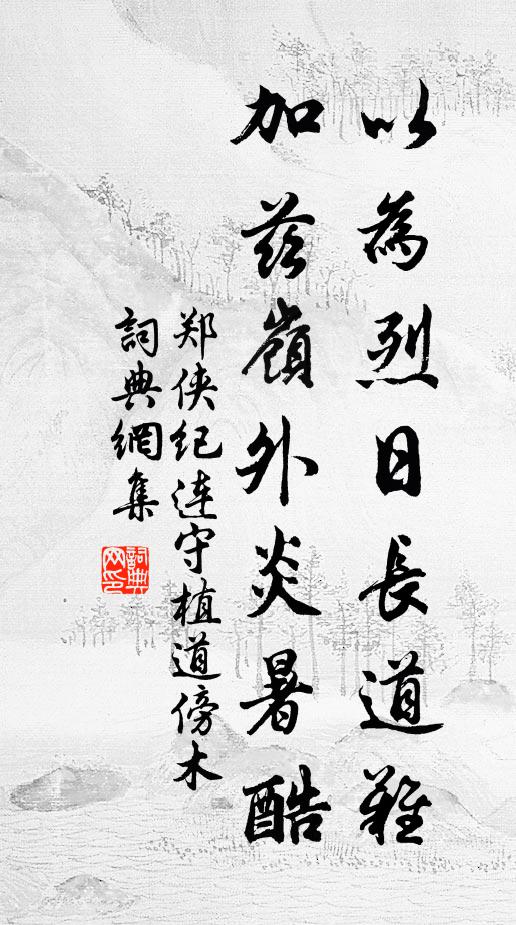 以為烈日長道難
加茲嶺外炎暑酷
郑侠纪連守植道傍木
詞典網集
詞典網印